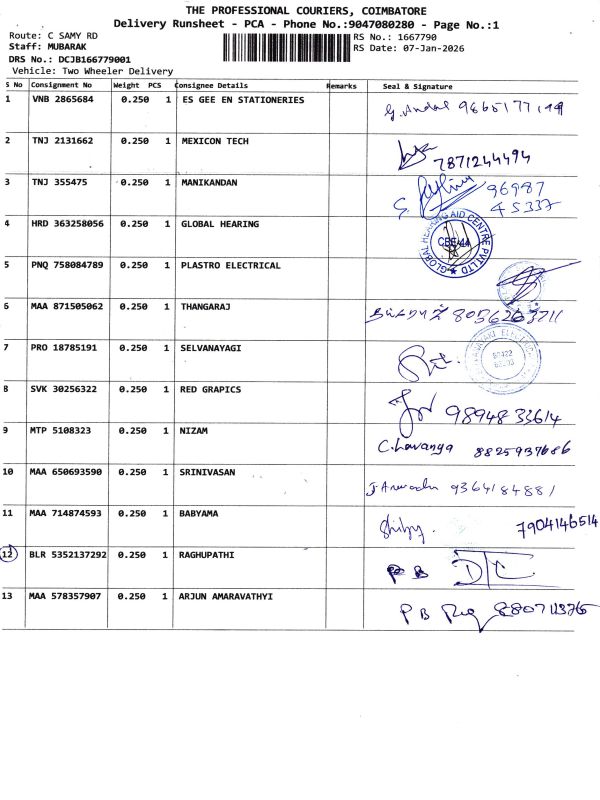 THE PROFESSIONAL COURIERS, COIMBATORE
Delivery Runsheet - PCA - Phone No.:9047080280 - Page No.:1
Route: C SAMY RD RS No.: 1667790
Staff: MUBARAK RS Date: 07-Jan-2026
DRS No.: DCJB166779001
Vehicle: Two Wheeler Delivery
S No Consignment No Weight PCS Consignee Details Remarks Seal & Signature
1 VNB 2865684 0.250 1 ES GEE EN STATIONERIES
2 TNJ 2131662 0.250 1 MEXICON TECH 7871244494
3 TNJ 355475 0.250 1 MANIKANDAN 96987
45337
4 HRD 363258056 0.250 1 GLOBAL HEARING GLOBAL HEARING AID CENTRE PVT LTD
5 PNQ 758084789 0.250 1 PLASTRO ELECTRICAL
6 MAA 871505062 0.250 1 THANGARAJ 8056263711
7 PRO 18785191 0.250 1 SELVANAYAGI
8 SVK 30256322 0.250 1 RED GRAPICS 9894833614
9 MTP 5108323 0.250 1 NIZAM C.Lavanya 8825937686
10 MAA 650693590 0.250 1 SRINIVASAN 9364184881
11 MAA 714874593 0.250 1 BABYAMA 7904146514
12 BLR 5352137292 0.250 1 RAGHUPATHI PB D/C
13 MAA 578357907 0.250 1 ARJUN AMARAVATHYI PB